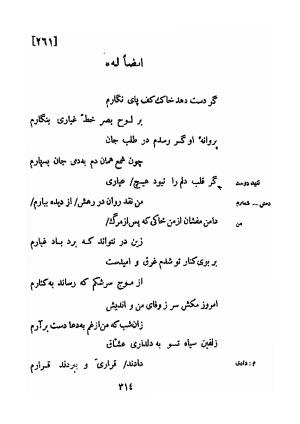 [۲۶۱]
ایضاً له
گر دست دهد خاک کف پای نگارم
بر لوح بصر خطّ غباری بنگارم
پروانهٔ او گر رسدم در طلب جان
چون شمع همان دم به‌دمی جان بسپارم
گر قلب دلم را نبود هیچ/ عیاری
من نقد روان در رهش/ از دیده ببارم/
دامن مفشان از من خاکی که پس از مرگ/
زین در نتواند که برد باد غبارم
بر بوی کنار تو شدم غرق و امیدست
از موج سرشکم که رساند به کنارم
امروز مکش سر ز وفای من و اندیش
زان شب که من از غم به‌دعا دست برآرم
زلفین سیاه تسو به دلداری عشّاق
دادند/ قراری و ببردند قرارم
دمش ... شمارم
من
م : دادی
۳۱۴